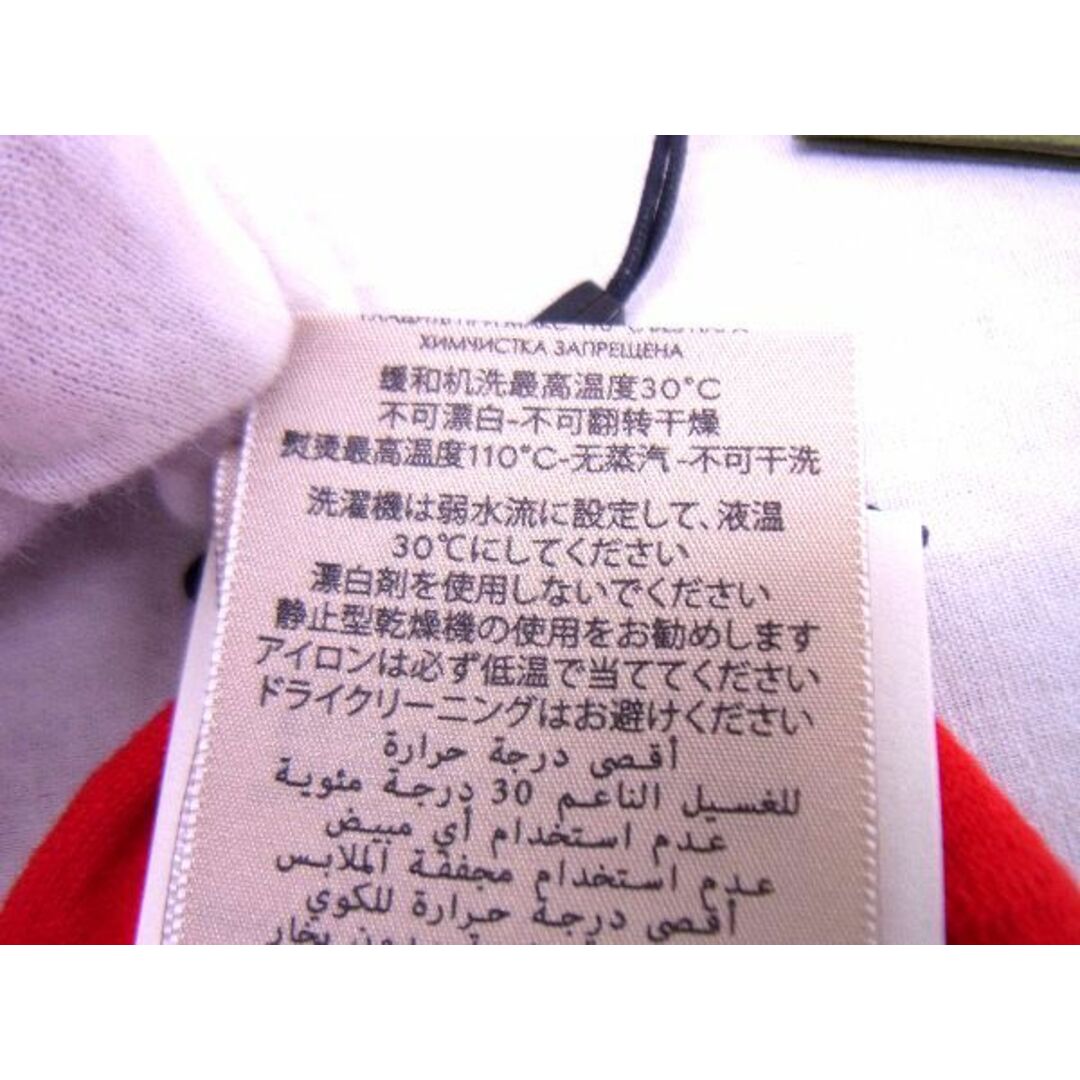 ХИМЧИСТКА ЗАПРЕЩЕНА
缓和机洗最高温度30°C
不可漂白-不可翻转干燥
熨烫最高温度110°C-无蒸汽-不可干洗
洗濯機は弱水流に設定して、液温
30℃にしてください
漂白剤を使用しないでください
静止型乾燥機の使用をお勧めします
アイロンは必ず低温で当ててください
ドライクリーニングはお避けください
أقصى درجة حرارة
للغسيل الناعم 30 درجة مئوية
عدم استخدام أي مبيض
عدم استخدام مجففة الملابس
أقصى درجة حرارة للكوي
بدون بخار